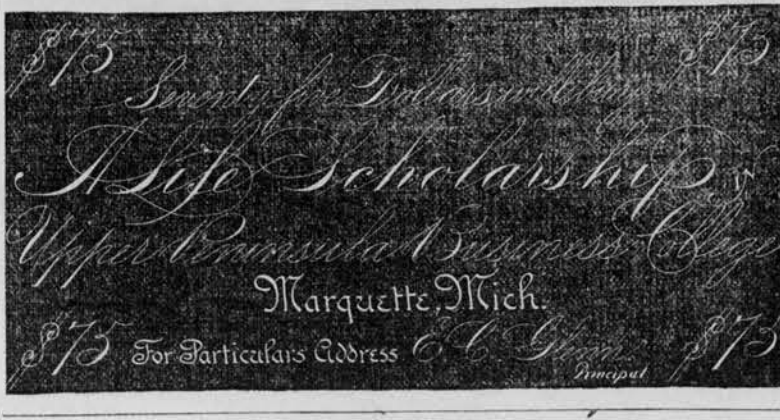 $75 $75
Seventy-five Dollars will buy
A Life Scholarship in
Upper Peninsula Business College
Marquette, Mich.
$75 For Particulars Address E. C. Glenn $75
Principal